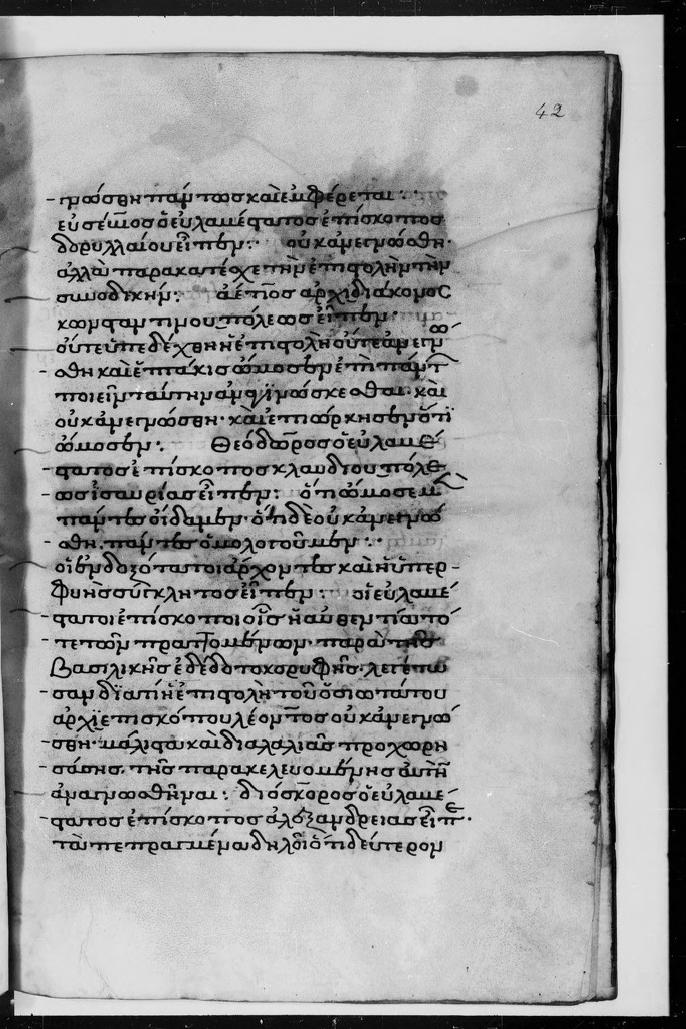 42
γνώσθη πάντως καὶ ἐμφέρεται:
εὐσέβιος ὁ εὐλαβέστατος ἐπίσκοπος
δορυλλαίου εἶπεν: οὐκ ἀνεγνώσθη·
ἀλλὰ παρακατέσχετο τὴν ἐπιστολὴν τὴν
συνοδικήν: ἀέτιος ἀρχιδιάκονος
κωνσταντινουπόλεως εἶπεν:
οὔτε ἐδέχθη ἡ ἐπιστολὴ οὔτε ἀνεγνώ
σθη καὶ ἑπτάκις ὤμοσεν ἐπὶ πάντων
ποιεῖν ταύτην ἀναγινώσκεσθαι· καὶ
οὐκ ἀνεγνώσθη· καὶ ἐπιώρκησεν ὅτι
ὤμοσεν: Θεόδωρος ὁ εὐλαβέ
στατος ἐπίσκοπος κλαυδιουπόλε
ως ἰσαυρίας εἶπεν: ὅτι ὤμοσεν
πάντες οἴδαμεν· ὅτι δὲ οὐκ ἀνεγνώ
σθη· πάντες ὁμολογοῦμεν:
οἱ ἐνδοξότατοι ἄρχοντες καὶ ἡ ὑπερ
φυὴς σύγκλητος εἶπεν: οἱ εὐλαβέ
στατοι ἐπίσκοποι οἷς ἡ αὐθεντία τό
τε τῶν πραττομένων παρὰ τῆς
βασιλικῆς ἐδέδοτο κορυφῆς· λεγέτω
σαν διατί ἡ ἐπιστολὴ τοῦ ὁσιωτάτου
ἀρχιεπισκόπου λέοντος οὐκ ἀνεγνώ
σθη· μάλιστα καὶ διαλαλιᾶς προχωρη
σάσης. τῆς παρακελευομένης αὐτὴν
ἀναγνωσθῆναι: διόσκορος ὁ εὐλαβέ
στατος ἐπίσκοπος ἀλεξανδρείας εἶπεν·
τὰ πεπραγμένα δηλοῖ ὅτι δεύτερον